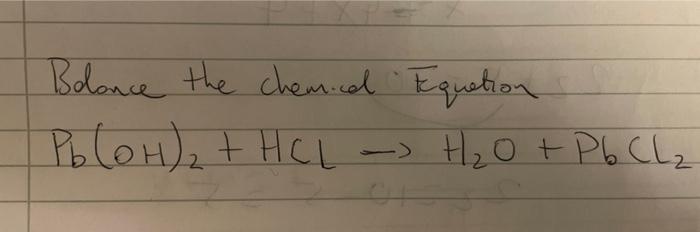 Balance the chemical Equation
Pb(OH)₂ + HCl → H₂O + PbCl₂